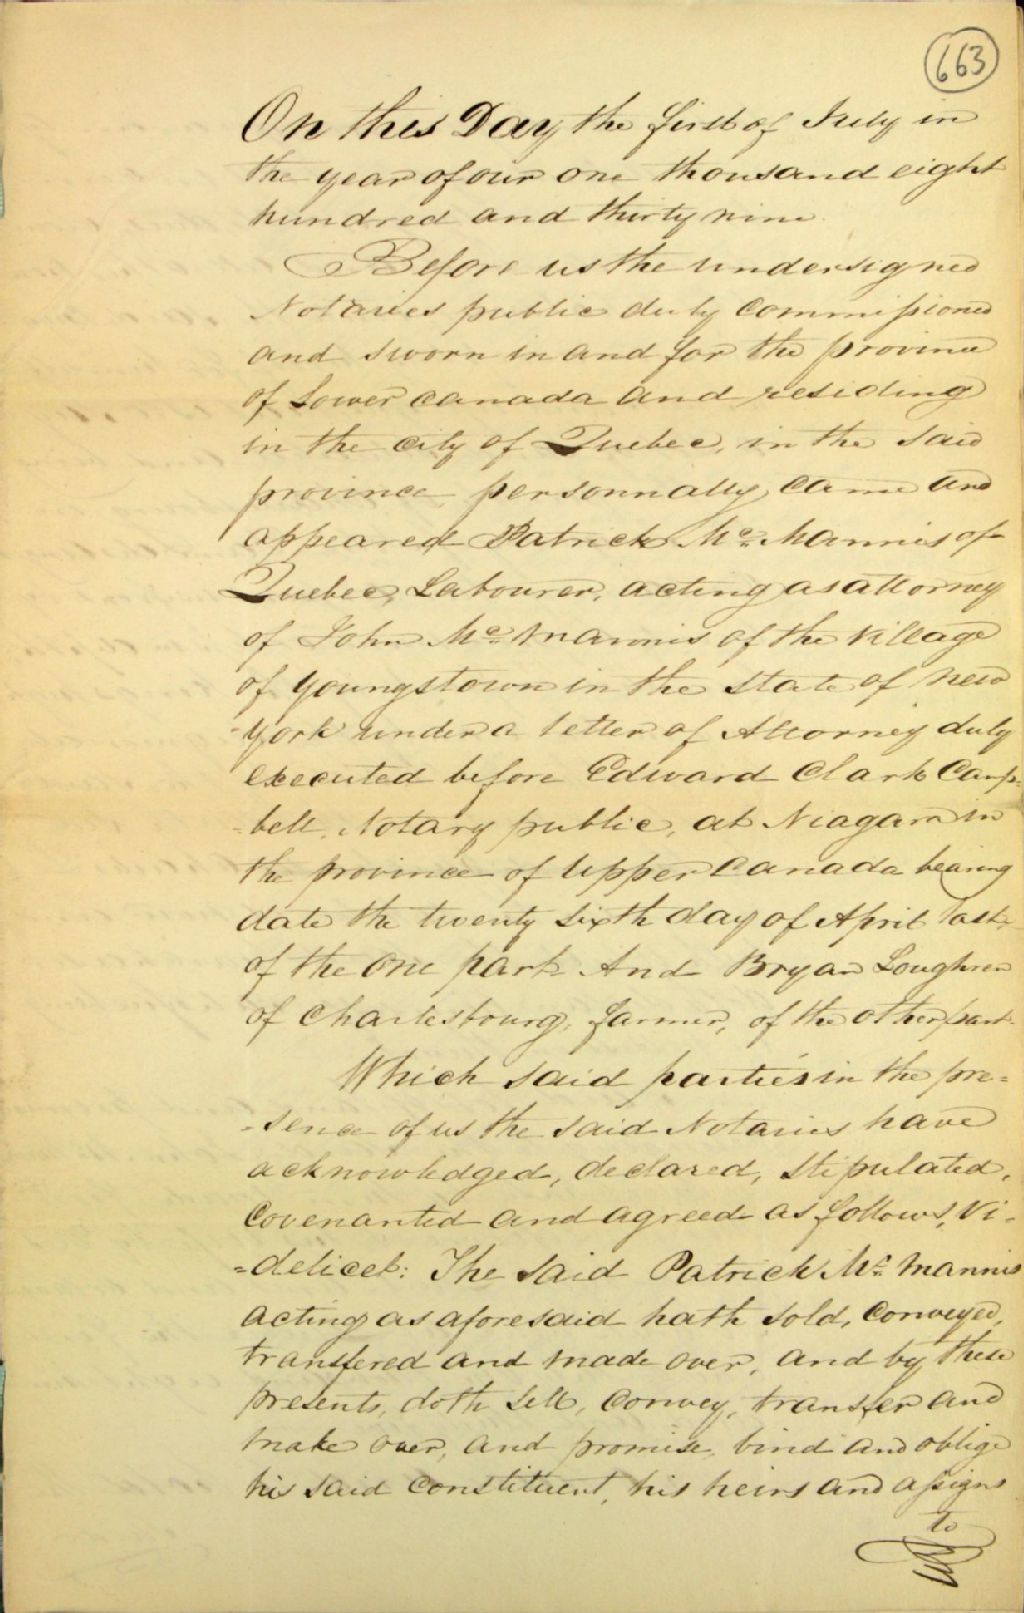 663
On this Day the first of July in
the year of our one thousand eight
hundred and thirty nine
Before us the undersigned
Notaries public duly Commissioned
and sworn in and for the province
of Lower Canada and residing
in the City of Quebec, in the said
province personnally came and
appeared Patrick Mc. Mannis of
Quebec, Labourer, acting as attorney
of John Mc. Mannis of the Village
of Youngstown in the State of New
York under a letter of Attorney duly
executed before Edward Clark Camp=
=bell, Notary public, at Niagara in
the province of Upper Canada bearing
date the twenty sixth day of April last,
of the one part And Bryan Loughren
of Charlesbourg, farmer, of the other part
Which said parties in the pre=
=sence of us the said Notaries have
acknowledged, declared, stipulated,
Covenanted and agreed as follows, Vi=
=delicet: The said Patrick Mc. Mannis
acting as aforesaid hath sold, Conveyed,
transfered and made over, and by these
presents, doth sell, convey, transfer and
make over, and promise, bind and oblige
his said Constituent, his heirs and assigns
to